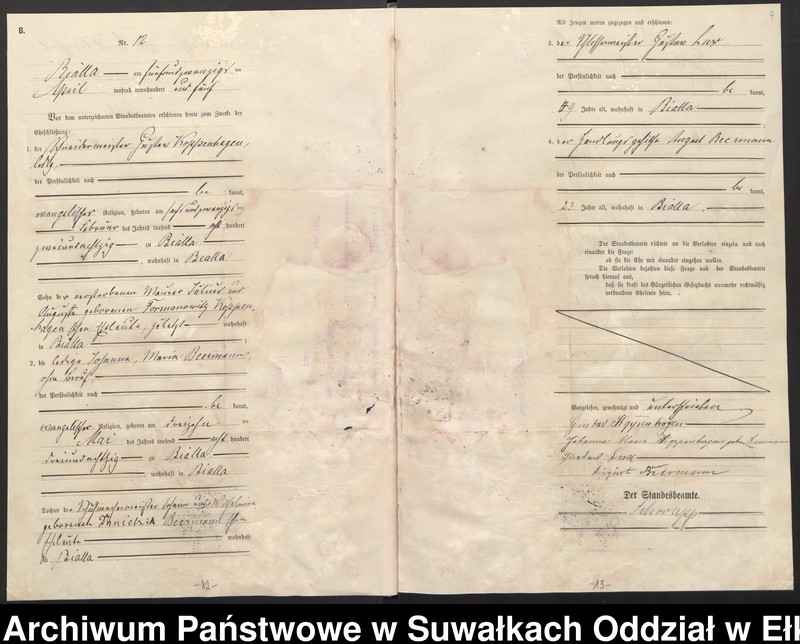 B.
Nr. 12
Bialla am fünfundzwanzigs ten
April tausend neunhundert und fünf
Vor dem unterzeichneten Standesbeamten erschienen heute zum Zwecke der
Eheschließung:
1. der Schneidermeister Gustav Koppenhagen,
ledig,
der Persönlichkeit nach
be kannt,
evangelischer Religion, geboren am sechsundzwanzigs ten
Februar des Jahres tausend acht hundert
zweiundachtzig zu Bialla
, wohnhaft in Bialla
Sohn der verstorbenen Maurer Julius und
Auguste geborenen Formanowitz Koppen-
hagen'schen Eheleute, zuletzt wohnhaft
in Bialla ;
2. die ledige Johanna, Maria Beermann,
ohne Beruf,
der Persönlichkeit nach
be kannt,
evangelischer Religion, geboren am dreizehn ten
Mai des Jahres tausend acht hundert
dreiundachtzig zu Bialla
, wohnhaft in Bialla
Tochter der Schuhmachermeister Johann und Wilhelmine
geborenen Beermann'schen
Eheleute wohnhaft
in Bialla
-12-
Als Zeugen waren zugezogen und erschienen:
3. der Schlossermeister Gustav Lux
der Persönlichkeit nach
be kannt,
Jahre alt, wohnhaft in Bialla ;
4. der Handlungsgehilfe August Beermann
der Persönlichkeit nach
be kannt,
23 Jahre alt, wohnhaft in Bialla.
Der Standesbeamte richtete an die Verlobten einzeln und nach
einander die Frage:
ob sie die Ehe mit einander eingehen wollen.
Die Verlobten bejahten diese Frage und der Standesbeamte
sprach hierauf aus,
daß sie kraft des Bürgerlichen Gesetzbuchs nunmehr rechtmäßig
verbundene Eheleute seien.
Vorgelesen, genehmigt und unterschrieben
Gustav Koppenhagen
Johanna Maria Koppenhagen geb. Beermann
Gustav Lux
August Beermann
Der Standesbeamte.
-13-
Archiwum Państwowe w Suwałkach Oddział w Eł